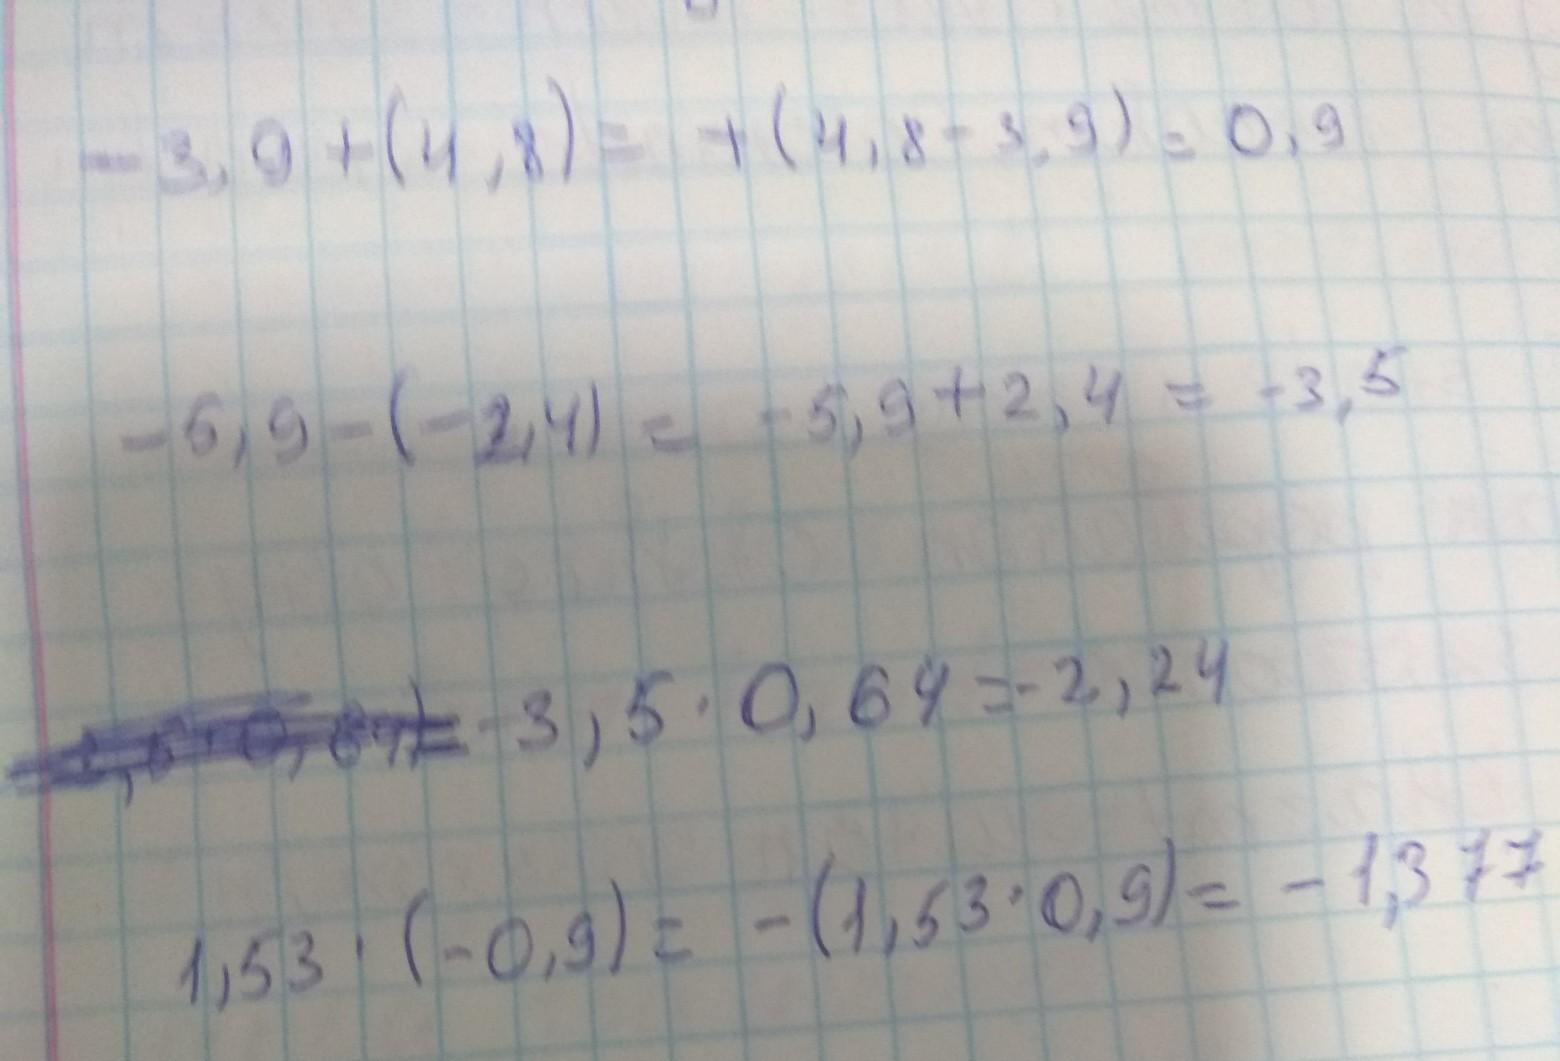 -3,9+(4,8)= +(4,8-3,9)=0,9
-5,9-(-2,4)= -5,9+2,4 = -3,5
-3,5·0,64=-2,24
1,53·(-0,9)= -(1,53·0,9)= -1,377